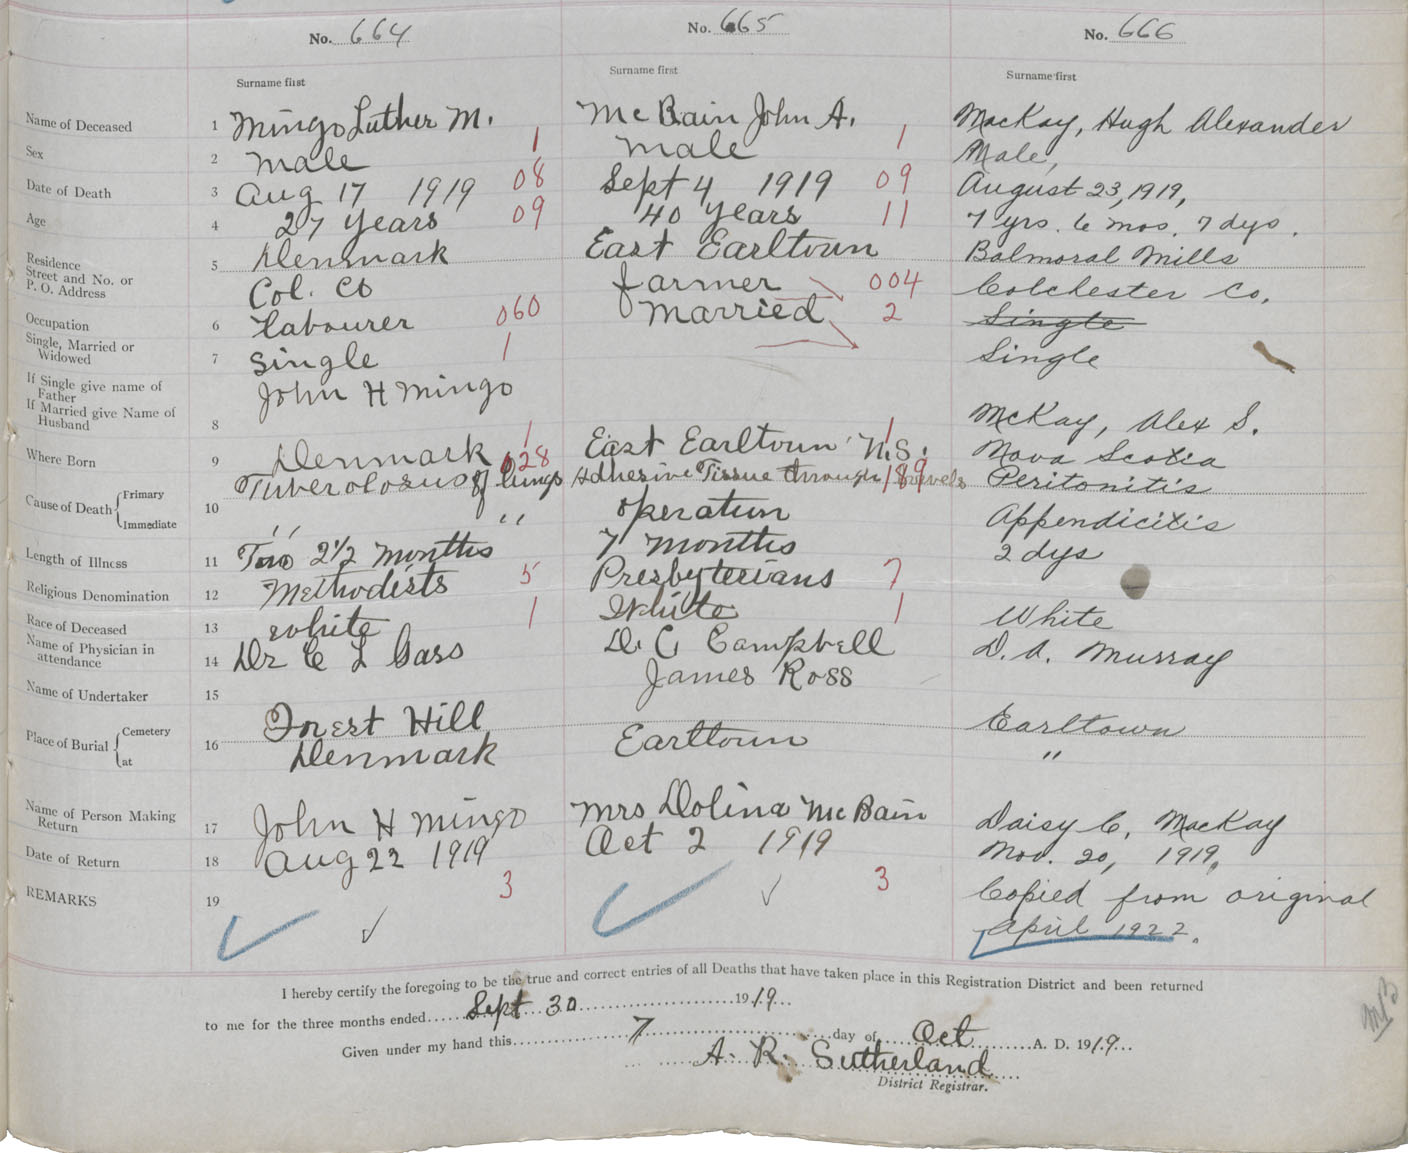 No. 664 No. 665 No. 666
Surname first Surname first Surname first
Name of Deceased 1 Mingo Luther M. McBain John A. MacKay, Hugh Alexander
Sex 2 male 1 male 1 Male,
Date of Death 3 Aug 17 1919 08 Sept 4 1919 09 August 23, 1919,
Age 4 27 years 09 40 years 11 7 yrs. 6 mos. 7 dys.
Residence
Street and No. or
P. O. Address
5 Denmark East Earltoun Balmoral Mills
Col. Co Colchester Co.
Occupation 6 labourer 060 farmer 004 Single
Single, Married or
Widowed
7 single 1 married 2 Single
If Single give name of
Father
If Married give Name of
Husband
8 John H Mingo McKay, Alex S.
Where Born 9 Denmark 1 East Earltoun N.S. 1 Nova Scotia
Cause of Death Primary
Immediate
10 Tuberolosus of lungs 028 Adhesive Tissue through bowels 189 Peritonitis
" " operation Appendicitis
Length of Illness 11 Two 2 1/2 months 7 months 2 dys
Religious Denomination 12 Methodists 5 Presbyterians 7
Race of Deceased 13 white 1 White 1 White
Name of Physician in
attendance
14 Dr C L Gass D. C. Campbell D. A. Murray
Name of Undertaker 15 James Ross
Place of Burial Cemetery
at
16 Forest Hill Earltown
Denmark Earltoun "
Name of Person Making
Return
17 John H Mingo Mrs Dolina McBain Daisy C. MacKay
Date of Return 18 Aug 22 1919 Oct 2 1919 Nov. 20, 1919,
REMARKS 19 3 3 Copied from original
April 1922.
I hereby certify the foregoing to be the true and correct entries of all Deaths that have taken place in this Registration District and been returned
to me for the three months ended Sept 30 1919
Given under my hand this 7 day of Oct A. D. 1919
A. R. Sutherland
District Registrar.